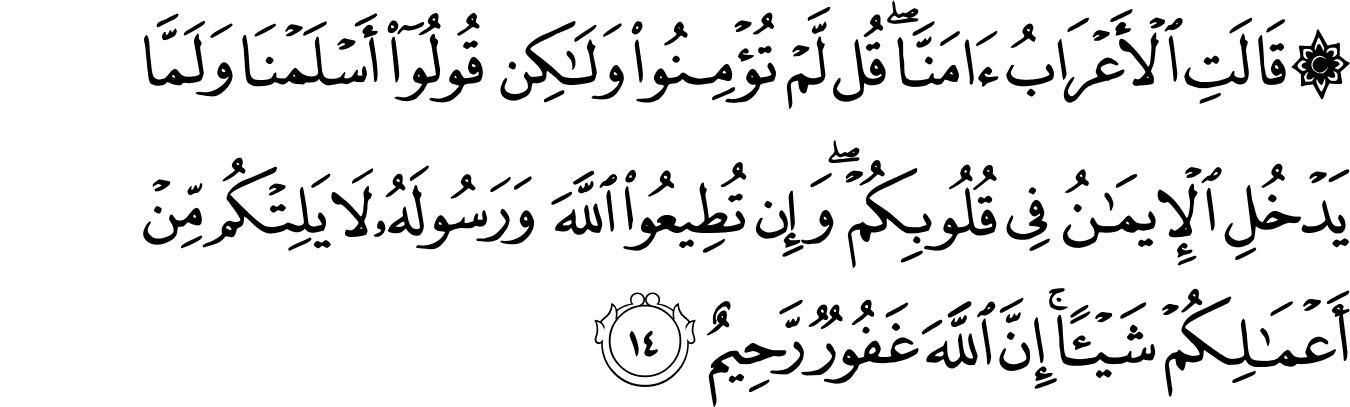 ۞ قَالَتِ ٱلْأَعْرَابُ ءَامَنَّا ۖ قُل لَّمْ تُؤْمِنُوا۟ وَلَـٰكِن قُولُوٓا۟ أَسْلَمْنَا وَلَمَّا
يَدْخُلِ ٱلْإِيمَـٰنُ فِى قُلُوبِكُمْ ۖ وَإِن تُطِيعُوا۟ ٱللَّهَ وَرَسُولَهُۥ لَا يَلِتْكُم مِّنْ
أَعْمَـٰلِكُمْ شَيْـًٔا ۚ إِنَّ ٱللَّهَ غَفُورٌ رَّحِيمٌ ١٤